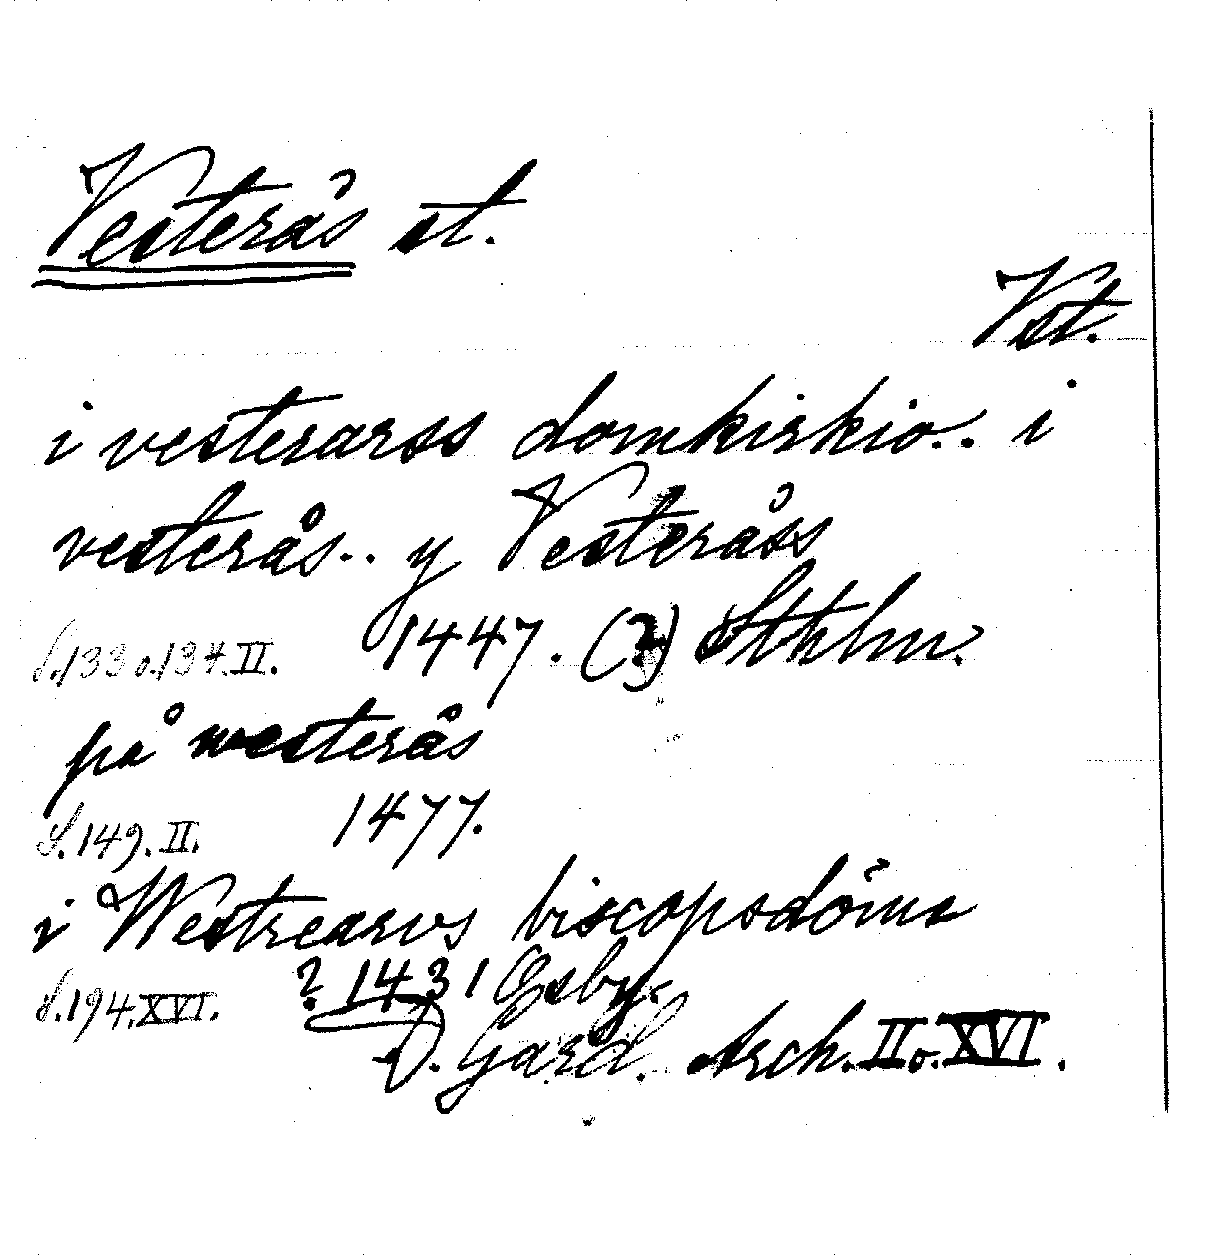 Vesterås st.
Vst.
i vesterarss domkirkio.. i
vesterås.. y Vesteråss
S.133 o.134.II. 1447. (2) Sthlm.
på westerås
S.149.II. 1477.
i Westrearvs biscopsdöme
S.194.XVI. ? 1431 Osby.
D. Gard. Arch. II o. XVI.